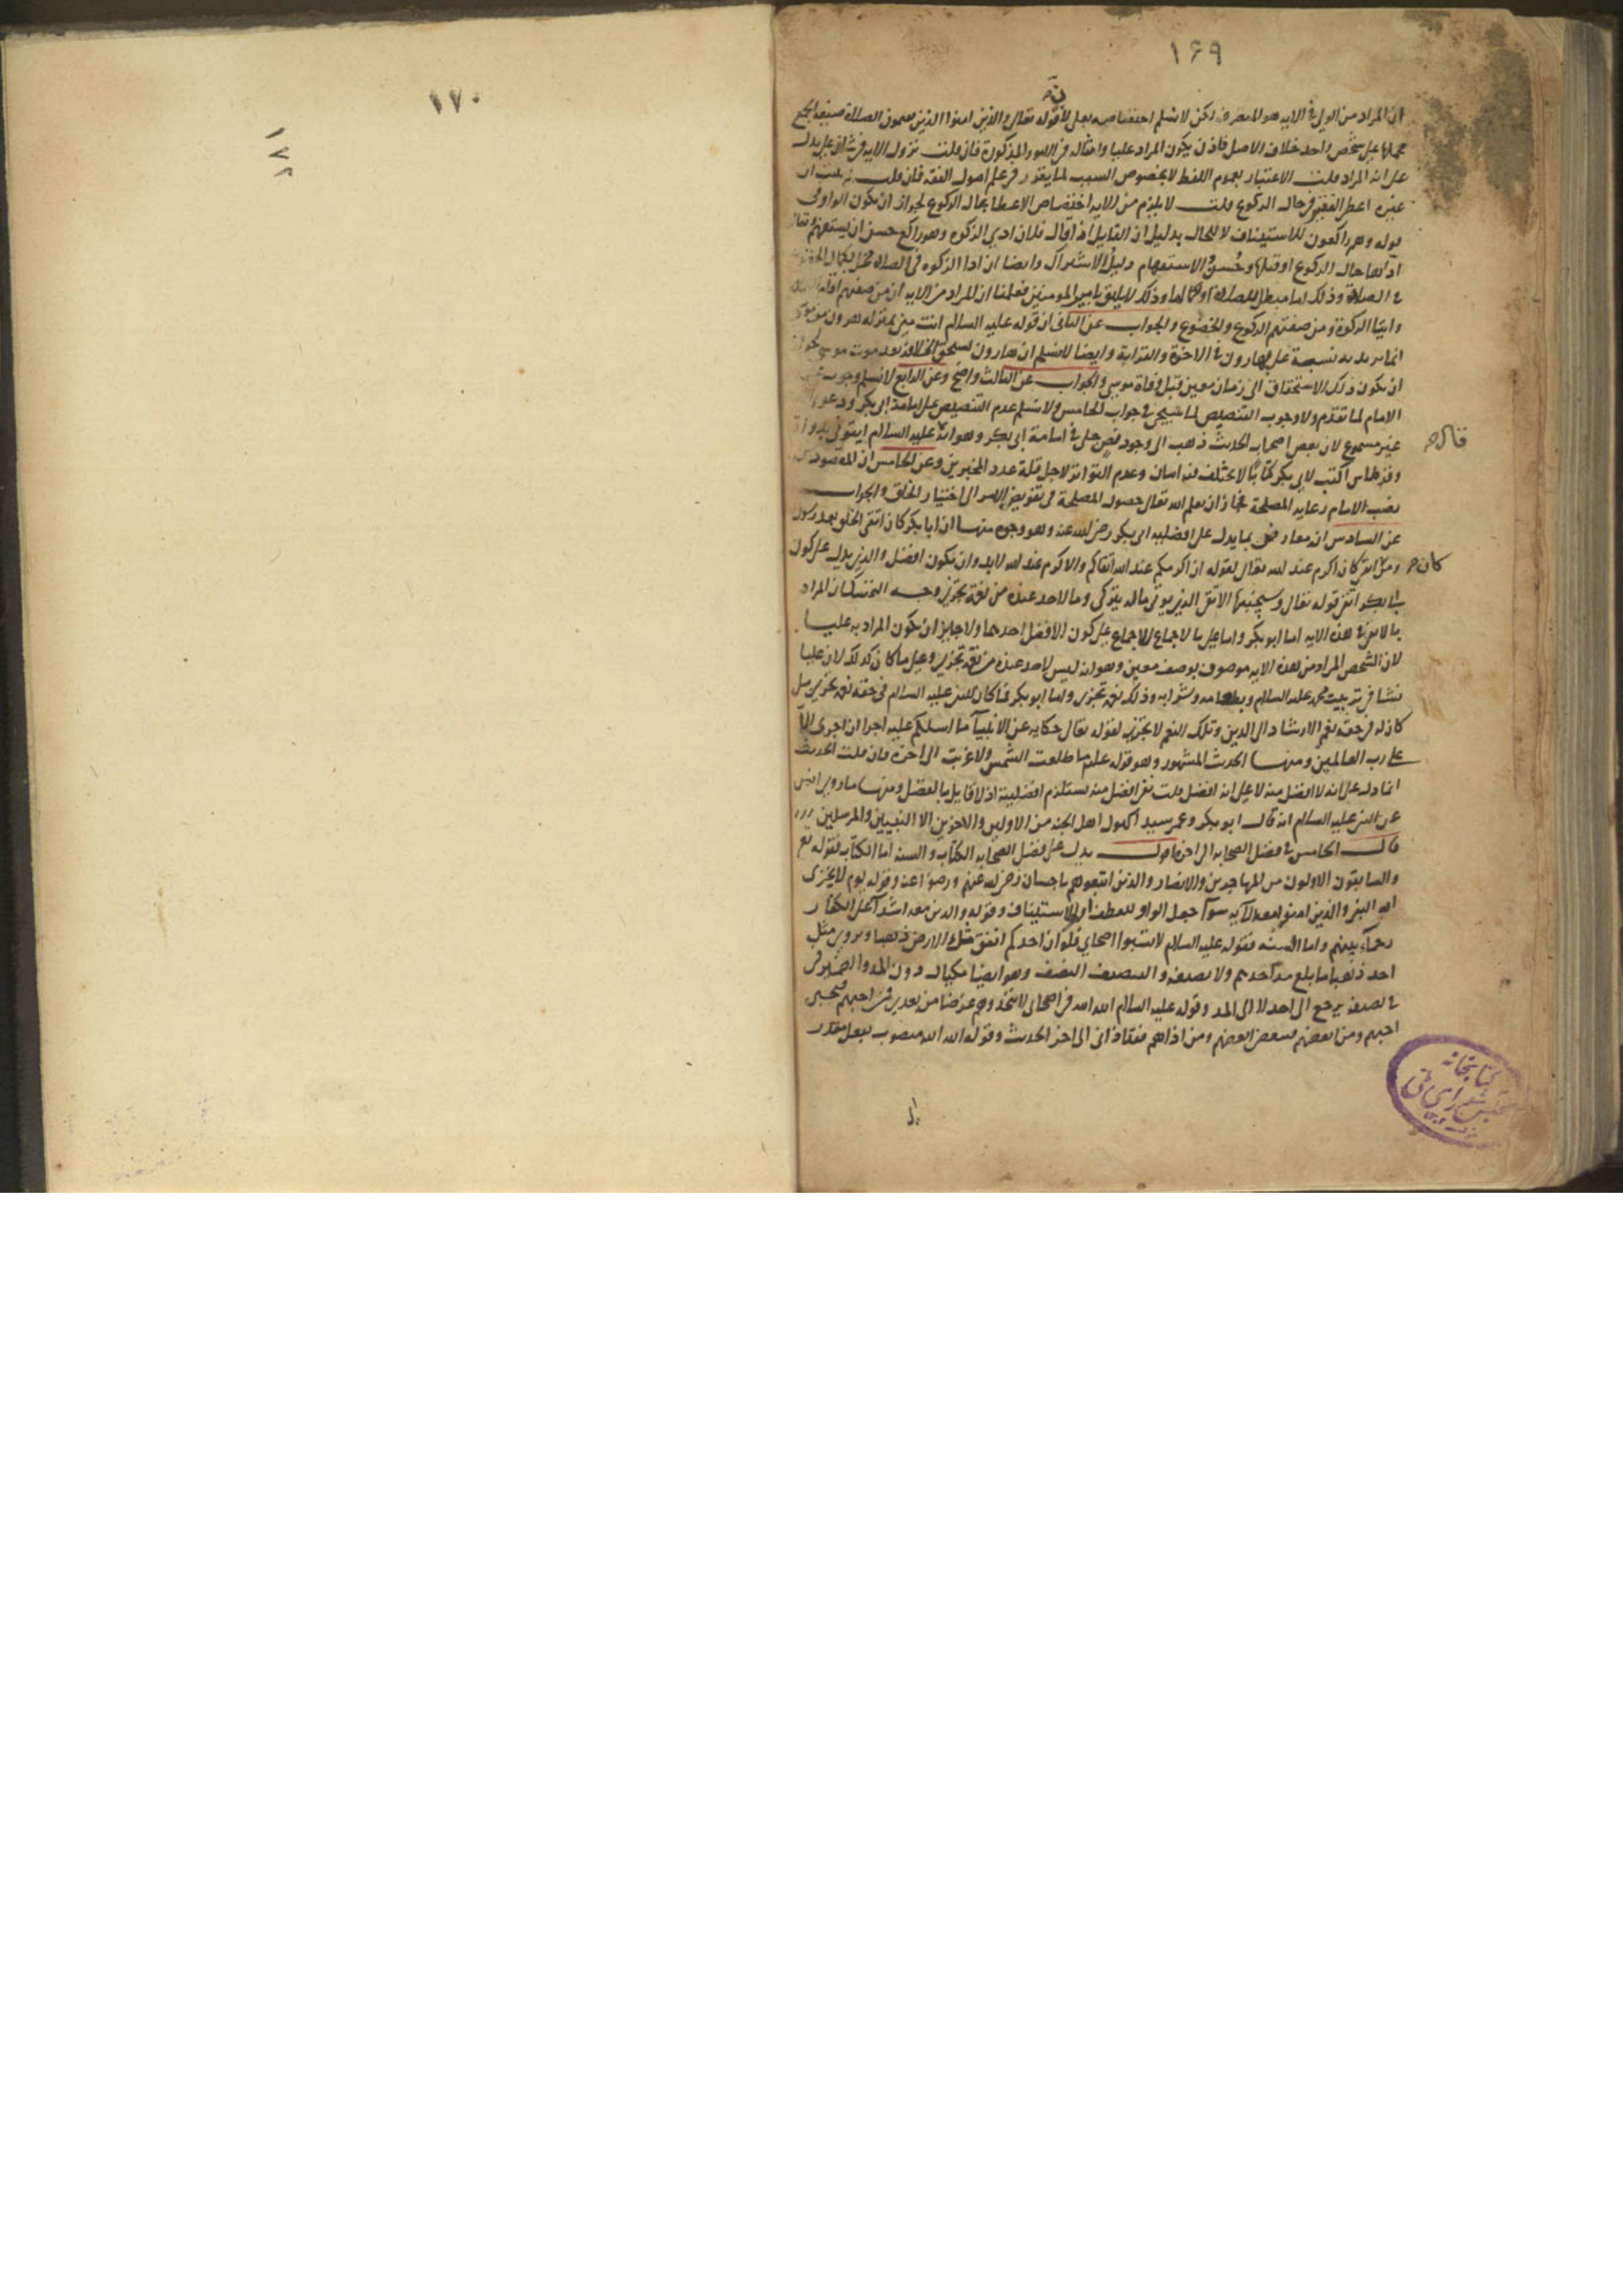 ١٦٩
ان المراد من الولي في الاية هو المتصرف لكن لا نسلم اختصاصه بعلي لان قوله تعالى والذين امنوا الذين يقيمون الصلاة صيغة الجمع
حملها على شخص واحد خلاف الاصل فاذن يكون المراد عليا وامثاله في الامور المذكورة فان قلت نزول الاية في شان علي يدل
على انه المراد قلت الاعتبار بعموم اللفظ لا بخصوص السبب لما يقرر في علم اصول الفقه فان قلت
غيره اعطى الفقير في حال الركوع قلت لا يلزم من الاية اختصاص الاعطا بحال الركوع لجواز ان يكون الواو في
قوله وهم راكعون للاستيناف لا للحال بدليل ان القايل اذا قال فلان ادى الزكوة وهو راكع حسن ان يستفهم
اداها حال الركوع او قبلها وحسن الاستفهام دليل الاشتراك وايضا ان ادا الزكوة في الصلاة مخل بكمال
في الصلاة وذلك اما مبطل للصلاة او لكمالها وذلك لا يليق بامير المومنين فعلمنا ان المراد من الاية ان من صفتهم
وايتا الزكوة ومن صفتهم الركوع والخضوع والجواب عن الثاني ان قوله عليه السالم انت مني بمنزلة هرون من موسى
انما يريد به نسبة علي بهارون في الاخوة والقرابة وايضا لا نسلم ان هارون يستحق الخلافة بعد موت موسى لجواز
ان يكون ذلك الاستحقاق الى زمان معين قبل وفاة موسى والجواب عن الثالث واضح وعن الرابع لا نسلم وجوب
الامام لما تقدم ولا وجوب التنصيص لما سيجي في جواب الخامس ولا نسلم عدم التنصيص على امامة ابي بكر ودعوى
غير مسموع لان بعض اصحاب الحديث ذهب الى وجود نص جلي في امامة ابي بكر وهو انه عليه السالم ايتوني بدواة
وقرطاس اكتب لابي بكر كتابا لا يختلف فيه اسان وعدم التواتر لاجل قلة عدد المخبرين وعن الخامس ان المقصود من
نصب الامام رعاية المصلحة فجاز ان يعلم الله تعالى حصول المصلحة في تفويض الامر الى اختيار الخلق والجواب
عن السادس انه معارض بما يدل على افضلية ابي بكر رضي الله عنه وهو وجوه منها ان ابا بكر كان اتقى الخلق بعد رسول
كان اكرم عند الله تعالى لقوله ان اكرمكم عند الله اتقاكم والاكرم عند الله لابد وان يكون افضل والذي يدل على كون
قوله تعالى وسيجنبها الاتقى الذي يوتي ماله يتزكى وما لاحد عنده من نعمة تجزى وجه التمسك ان المراد
بالاتقى في هذه الاية اما ابو بكر واما علي بالاجماع للاجماع على كون الافضل احدهما ولا جايز ان يكون المراد به عليا
لان الشخص المراد من هذه الاية موصوف بوصف معين وهو انه ليس لاحد عنده من نعمة تجزى وعلي ما كان كذلك لان عليا
نشا في تربيت محمد عليه السالم وبطعامه وشرابه وذلك نعمة تجزى واما ابو بكر فما كان للنبي عليه السالم في حقه نعمة تجزى بل
كان له في حقه نعم الارشاد الى الدين وتلك النعم لا تجزى لقوله تعالى حكاية عن الانبيآ ما اسلكم عليه اجرا ان اجرى الا
على رب العالمين ومنها الحديث المشهور وهو قوله علم ما طلعت الشمس ولا غربت الى اخره فان قلت الحديث
انما دل على انه لا افضل منه لا على انه افضل قلت نفى افضل منه يستلزم افضليته اذ لا قايل بالفصل ومنها ما روى انس
عن النبي عليه السالم انه قال ابو بكر وعمر سيدا كهول اهل الجنة من الاولين والاخرين الا النبيين والمرسلين
قال الخامس في فضل الصحابة الى اخره اقول يدل على فضل الصحابة الكتاب والسنة اما الكتاب فقوله تع
والسابقون الاولون من المهاجرين والانصار والذين اتبعوهم باحسان رضي الله عنهم ورضوا عنه وقوله يوم لا يخزى
الله النبي والذين امنوا معه الآية سوآ جعل الواو للعطف او للاستيناف وقوله والذين معه اشدآ على الكفار
رحمآء بينهم واما السنة فقوله عليه السالم لا تسبوا اصحابي فلو ان احدكم انفق مثل الارض ذهبا ويروى مثل
احد ذهبا ما بلغ مد احدهم ولا نصيفه والنصيف النصف وهو ايضا مكيال دون المد والضمير في
في نصيفه يرجع الى احد لا الى المد وقوله عليه السالم الله الله في اصحابي لا تتخذوهم غرضا من بعدي فمن احبهم فبحبي
احبهم ومن ابغضهم فببغضي ابغضهم ومن اذاهم فقد اذاني الى اخر الحديث وقوله الله الله منصوب بفعل مقدر
كان
كتابخانه
مجلس شوراى ملى
١٧٠